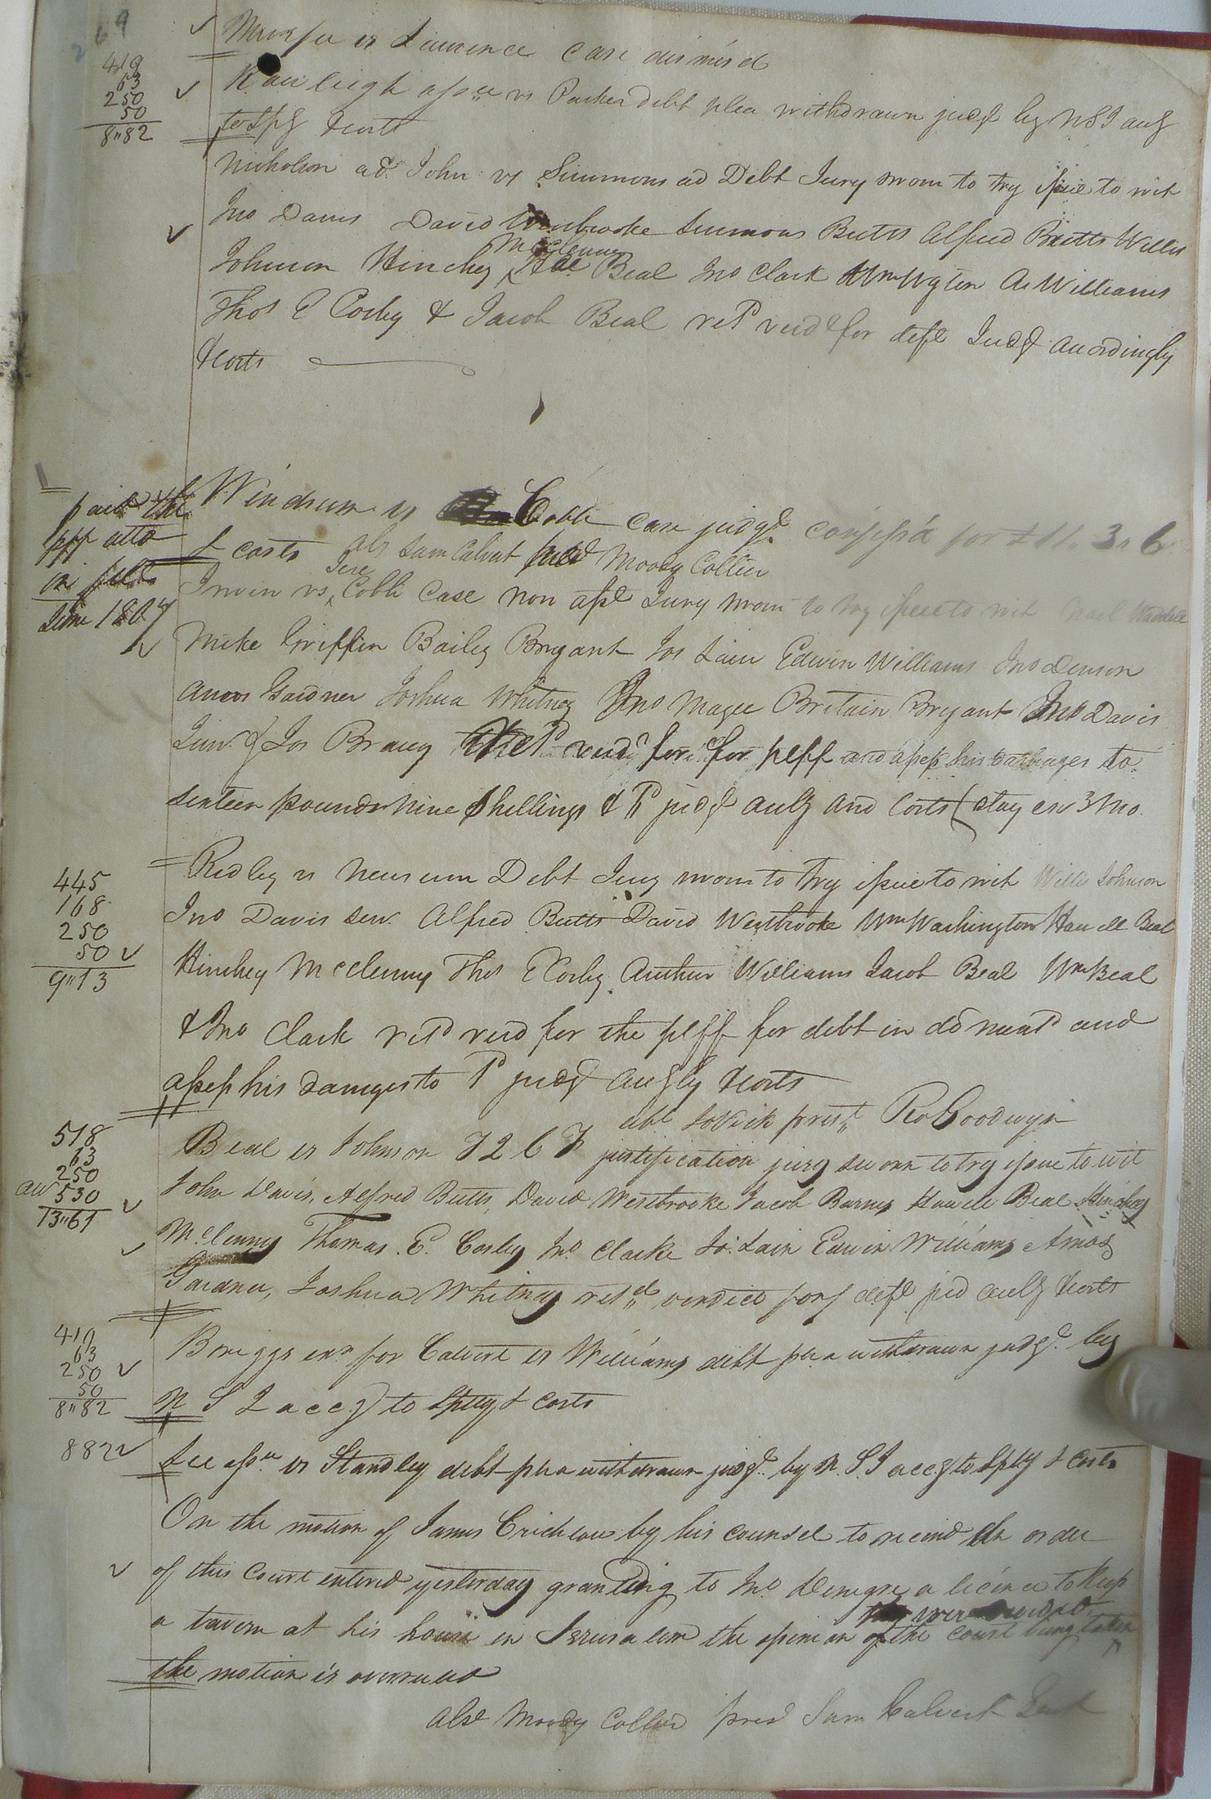 269
vs Laurence case dismis'd
419
63
250
50
8"82
Rawleigh assee vs Parker debt plea withdrawn judgt by NSI
to Spy & costs
Nicholson ad. John vs Simmons ad Debt Jury sworn to try issue to wit
Jno Davis David Westbrooke Simmons Butts Alfred Butts Willis
McClenny
Johnson Hinchey Beal Jno Clark Wm Wgton A. Williams
Thos E Corby & Jacob Beal retd verdt for deft Judgt accordingly
& costs
paid the
plff atto
on
June 1807
Windrum vs Cobb case judgt confess'd for £11.3.6
& costs abs Sam Calvert Moody Collier
Irvin vs Cobb Case non asst Jury sworn to try issue to wit
Mike Griffin Bailey Bryant Jos Lain Edwin Williams Jno Denson
Amos Gardner Joshua Whitney Jno Magee Britain Bryant Jno Davis
& Jos Bracy retd verdt for plff and assess his damages to
sixteen pounds nine shillings & judgt and costs (stay exn 3 Mo.
445
168
250
50
9"13
Ridley vs Newsum Debt Jury sworn to try issue to wit Willis Johnson
Jno Davis senr. Alfred Butts David Westbrooke Wm Washington Howell Beal
Hinchey McClenny Thos E Corby Arthur Williams Jacob Beal Wm Beal
& Jno Clark retd verd for the plff for debt in and
assess his damges to judgt & costs
abs prest Goodwyn
518
63
250
530
13"61
Beal vs Johnson justification jury sworn to try issue to wit
John Davis, Alfred Butts, David Westbrooke Jacob Barnes Howell Beal Hinchey
McClenny Thomas E. Corby Jno Clarke Jo: Lain Edwin Williams Amos
Gardner, Joshua Whitney retd verdict for deft jud & costs
419
63
250
50
8"82
Briggs exr for Calvert vs Williams debt plea withdrawn judgt by
N S I accg to Splty & costs
882
Lee assee vs Standley debt plea withdrawn judgt by N. S. I accg to Splty & costs
On the motion of James Crichlow by his counsel to recind the order
of this Court entered yesterday granting to Jno a licence to keep
a tavern at his house in Jerusalem the opinion of the court being taken
the motion is overruled
Abst Moody Collier prest Sam Calvert Gent